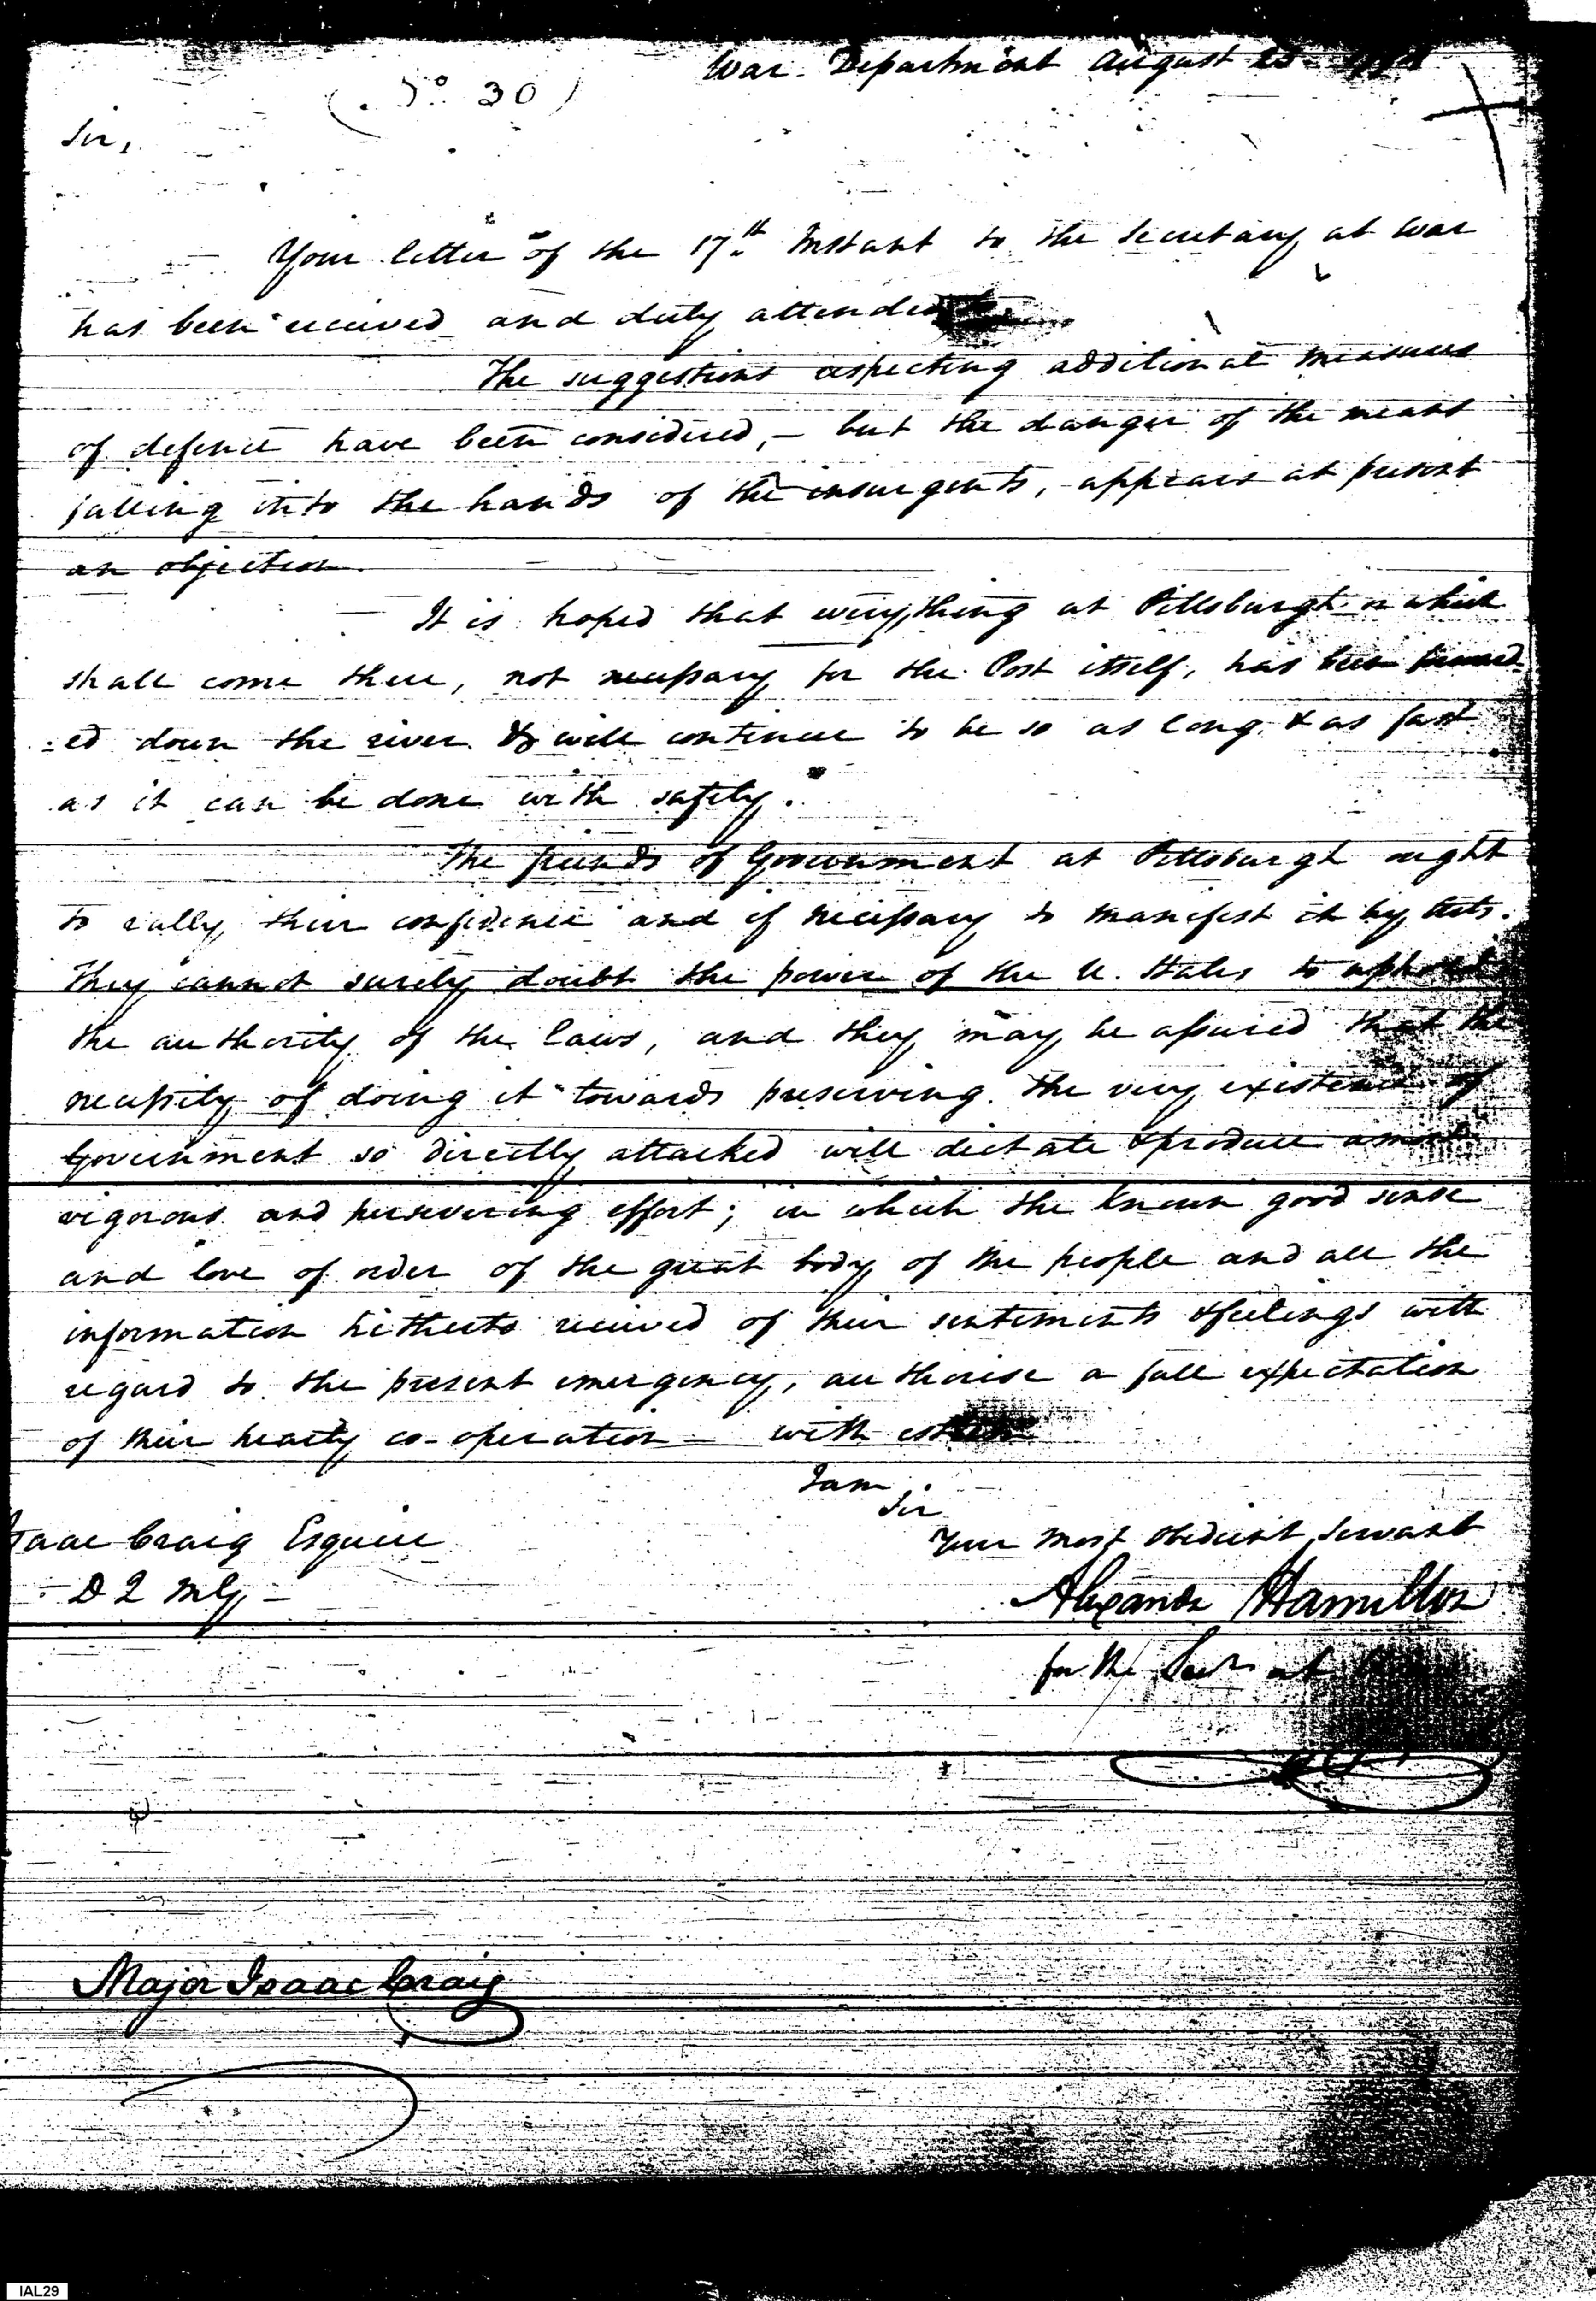 War Department August
(No 30)
Sir,
Your letter of the 17th Instant to the Secretary at War
has been received and duly attended
The suggestions respecting additional measures
of defence have been considered, – but the danger of the means
falling into the hands of the insurgents, appears at present
an objection.
It is hoped that every thing at Pittsburgh or which
shall come there, not necessary for the Post itself, has been forward
=ed down the river & will continue to be so as long & as fast
as it can be done with safety.
The friends of Government at Pittsburgh ought
to rally their confidence and if necessary to manifest it by acts.
They cannot surely doubt the power of the U. States to uphold
the authority of the laws, and they may be assured that the
necessity of doing it towards preserving the very existence of
Government so directly attacked will dictate & produce a most
vigorous and persevering effort; in which the known good sense
and love of order of the great body of the people and all the
information hitherto received of their sentiments & feelings with
regard to the present emergency, authorise a full expectation
of their hearty co-operation – with esteem
I am,
Sir
Your most obedient servant
Alexander Hamilton
for the Secy at War
Isaac Craig Esquire
D Q M G –
Major Isaac Craig
IAL29